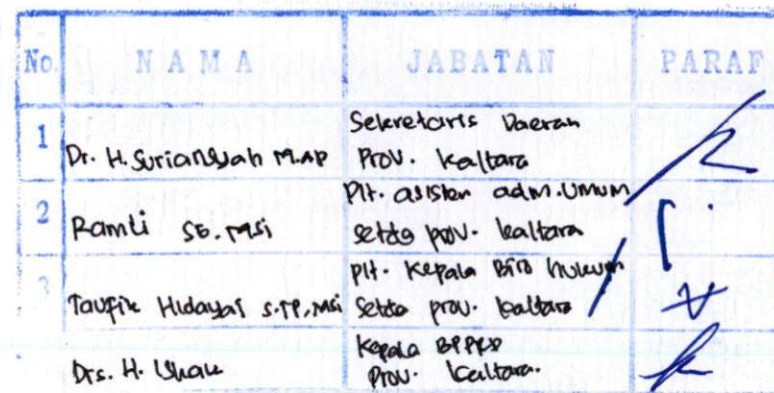 No. NAMA JABATAN PARAF
1 Dr. H. Suriansyah M.AP Sekretaris Daerah
Prov. Kaltara
2 Ramli SE. MSi Plt. asisten adm. Umum
setda prov. kaltara
3 Taufik Hidayat S.TP, MSi Plt. Kepala Biro hukum
Setda prov. kaltara
Drs. H. Kepala
Prov. kaltara.